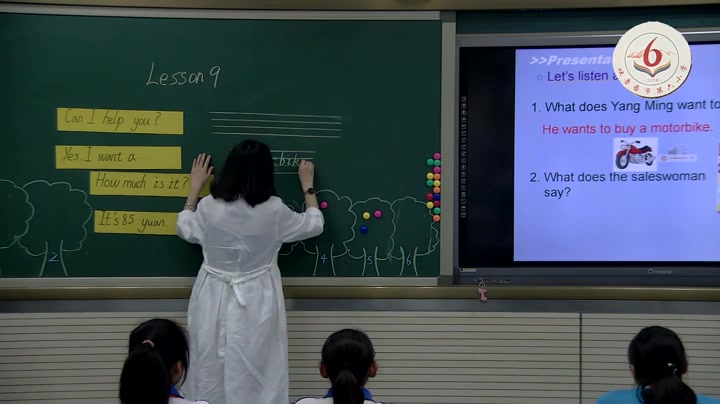 Lesson 9
Can I help you?
Yes. I want a...
How much is it?
It's 85 yuan.
bike
2
4
5
6
>>Presenta
Let's listen a
1. What does Yang Ming want to
He wants to buy a motorbike.
2. What does the saleswoman
say?
6